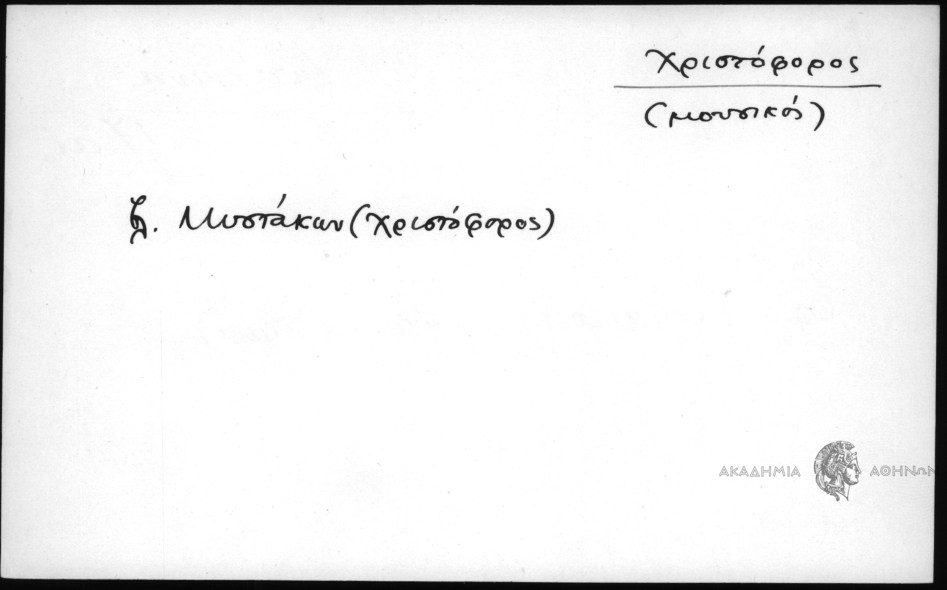 Χριστόφορος
(μουσικός)
ζ. Μυστάκων (Χριστόφορος)
ΑΚΑΔΗΜΙΑ ΑΘΗΝΩΝ